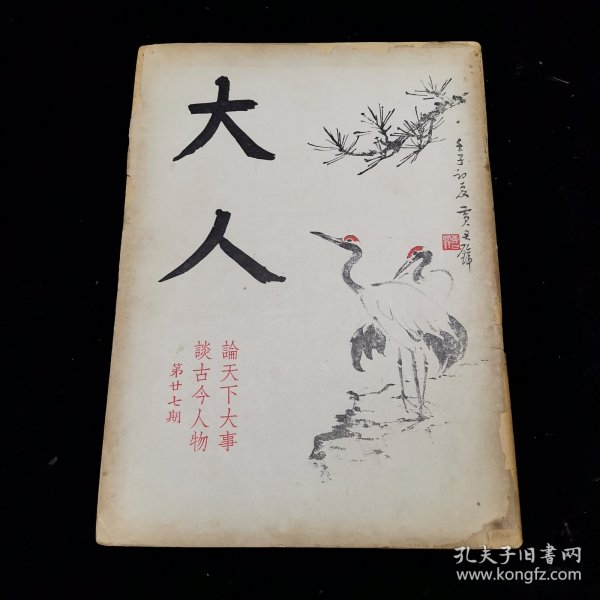 大人
壬子初夏 黃君璧
論天下大事
談古今人物
第廿七期
孔夫子旧书网
www.kongfz.com